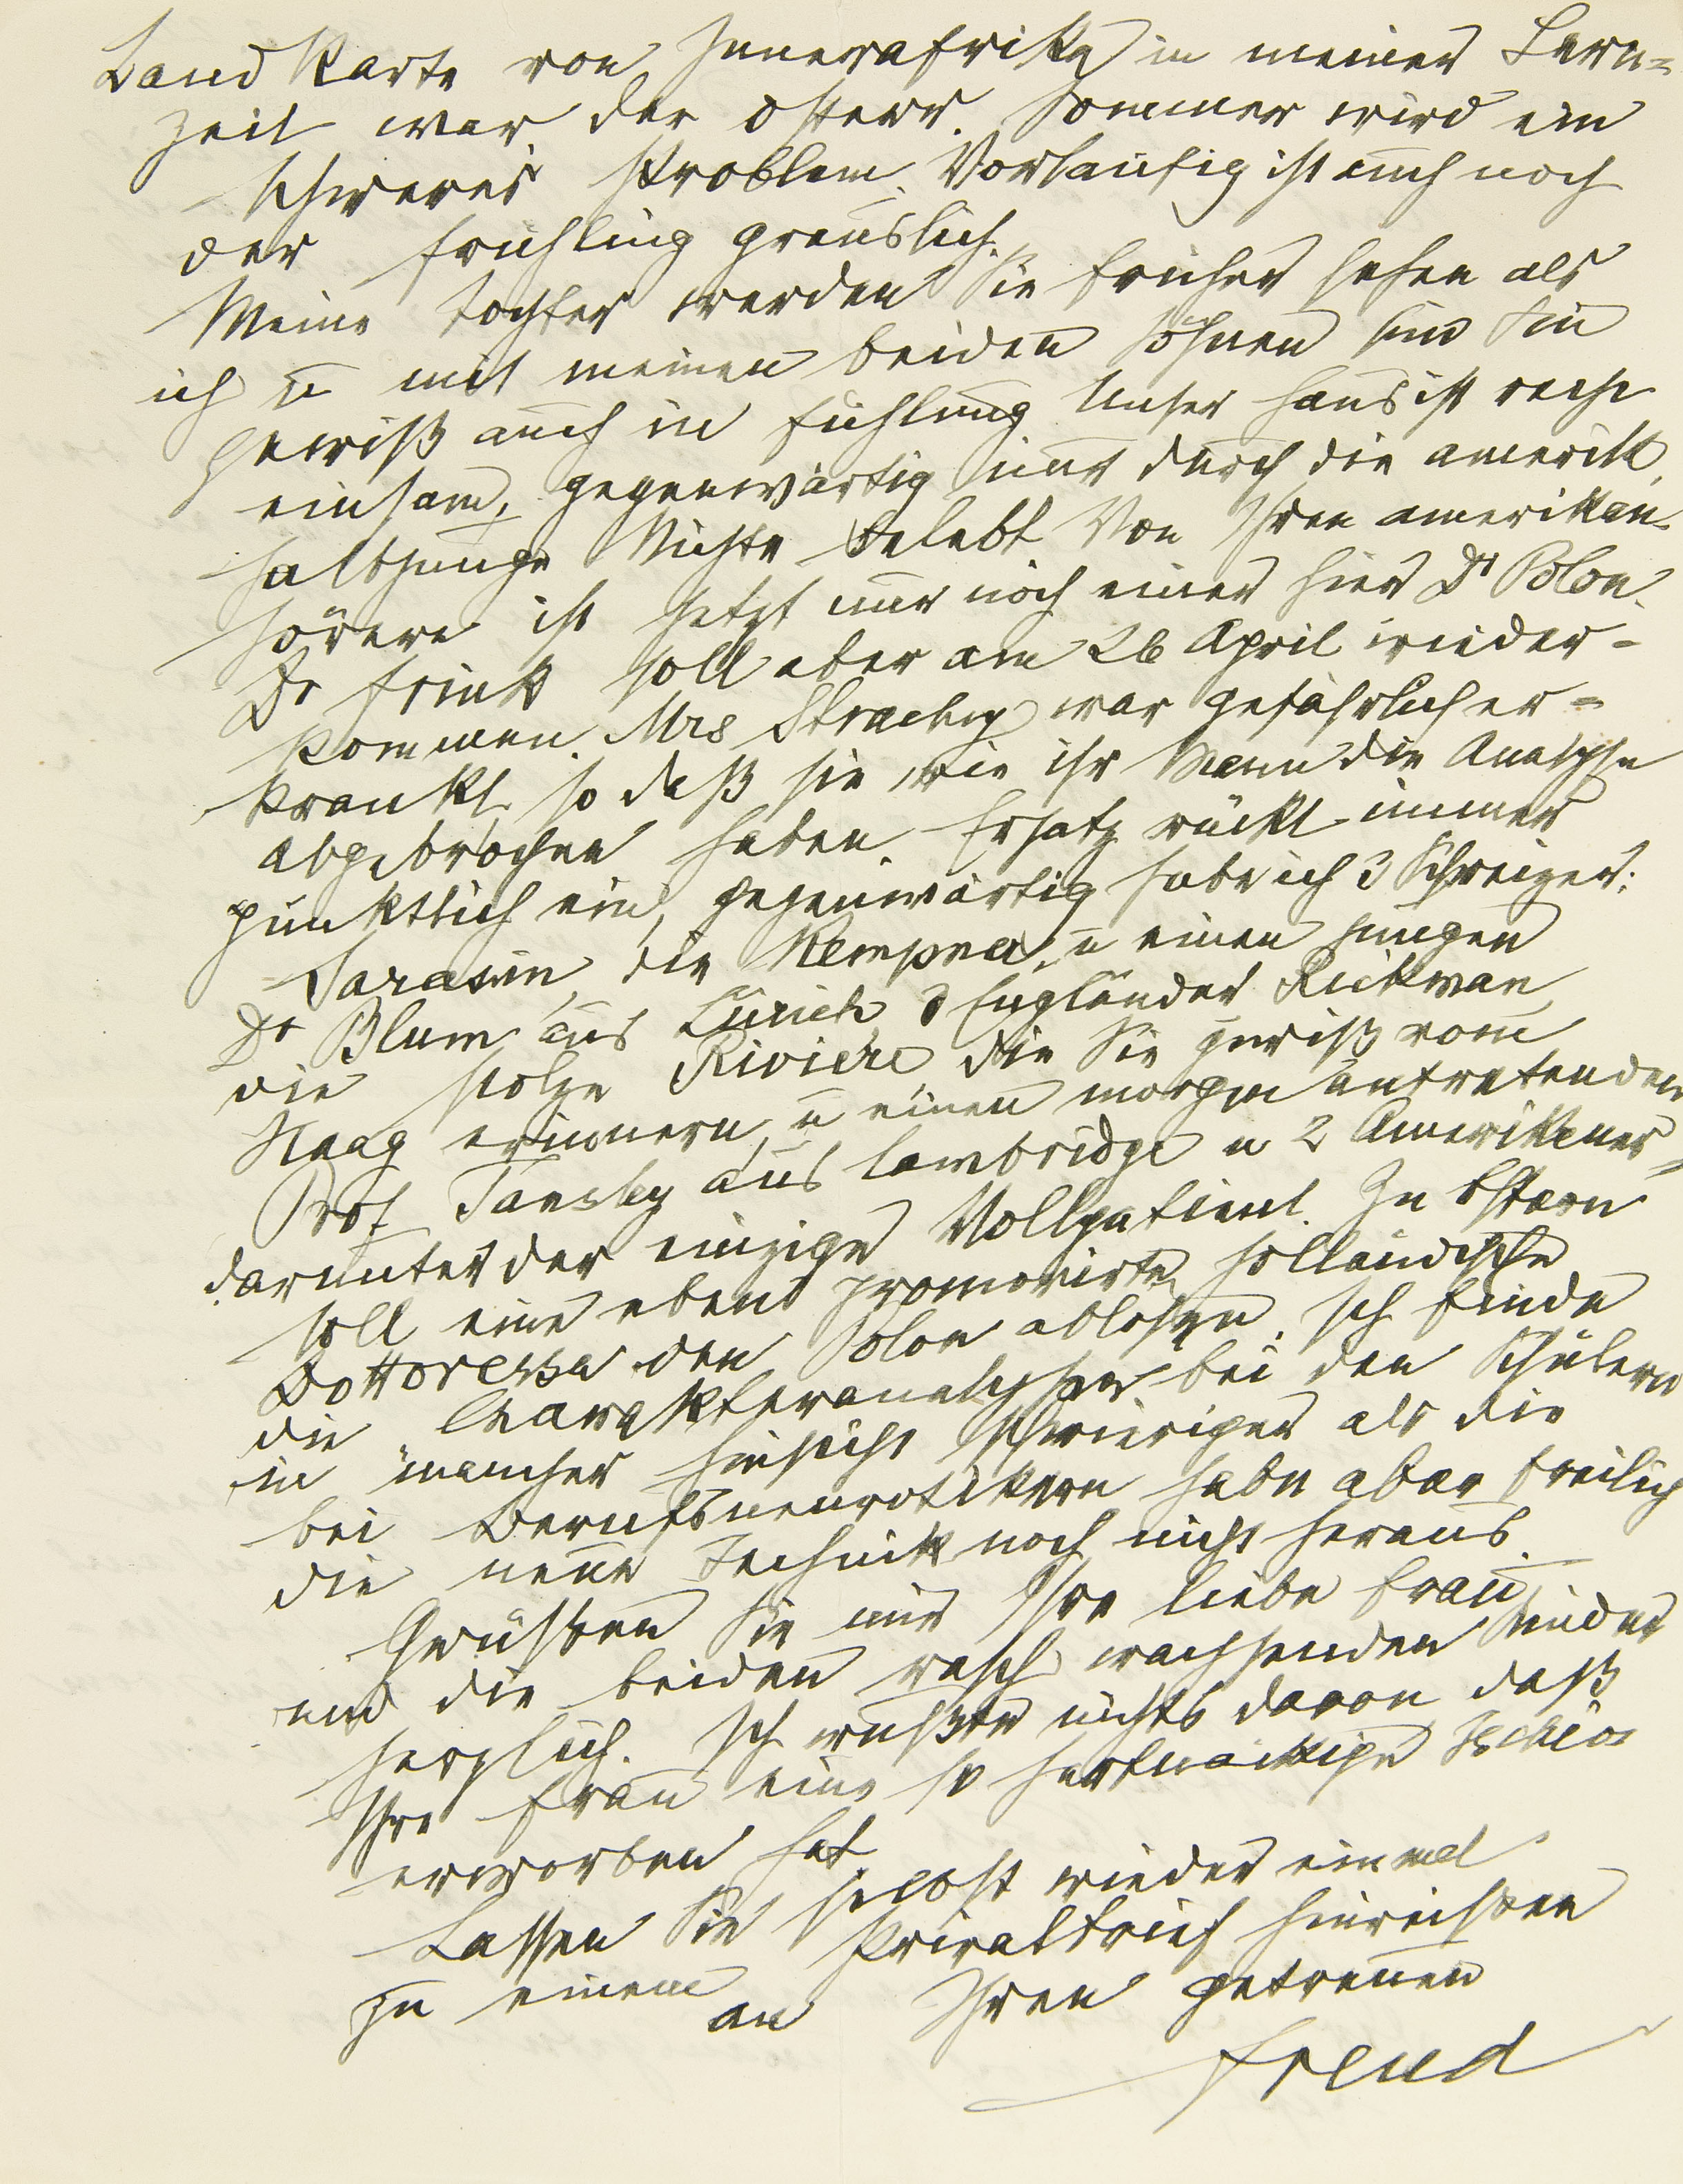 Landkarte von Innerafrika in meiner Lern-
zeit war der österr. Sommer wird ein
schweres Problem. Vorläufig ist auch noch
der Frühling greuslich.
Meine Tochter werden Sie früher sehen als
ich u mit meinen beiden Söhnen sind Sie
gewiß auch in Fühlung. Unser Haus ist recht
einsam, gegenwärtig nur durch die amerik.
halbjunge Nichte belebt. Von Ihren amerikan.
Hörern ist jetzt nur noch einer hier Dr Polon.
Dr Frink soll aber am 26 April wieder-
kommen. Mrs Strachey war gefährlich er-
krankt, so daß sie wie ihr Mann die Analyse
abgebrochen haben. Ersatz rückt immer
pünktlich ein, gegenwärtig habe ich 3 Schweizer:
Sarasin, die Kempner, u einen jungen
Dr Blum aus Zürich, 3 Engländer Rickman,
die stolze Riviere die Sie gewiß vom
Haag erinnern, u einen morgen antretenden
Prof Tansley aus Cambridge u 2 Amerikaner,
darunter der einzige Vollpatient. Zu Ostern
soll eine eben promovirte holländische
Dottoressa den Polon ablösen. Ich finde
die Charakteranalysen bei den Schülern
in mancher Hinsicht schwieriger als die
bei Berufsneurotikern habe aber freilich
die neue Technik noch nicht heraus.
Grüßen Sie mir Ihre liebe Frau
und die beiden rasch wachsenden Kinder
herzlich. Ich wußte nichts davon daß
Ihre Frau eine so hartnäckige Ischias
erworben hat.
Lassen Sie selbst wieder einmal
zu einem Privatbrief hinreißen
an Ihren getreuen
Freud